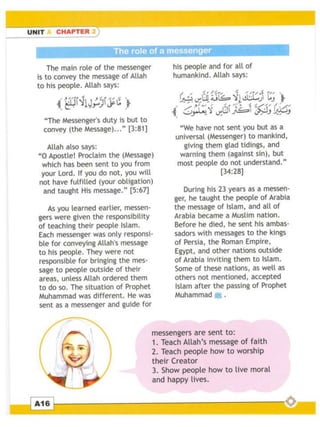 UNIT A CHAPTER 2
The role of a messenger
The main role of the messenger
is to convey the message of Allah
to his people. Allah says:
﴿ مَّا عَلَى ٱلرَّسُولِ إِلَّا ٱلْبَلَٰغُ ﴾
"The Messenger's duty is but to
convey (the Message)..." [3:81]
Allah also says:
"O Apostle! Proclaim the (Message)
which has been sent to you from
your Lord. If you do not, you will
not have fulfilled (your obligation)
and taught His message." [5:67]
As you learned earlier, messen-
gers were given the responsibility
of teaching their people Islam.
Each messenger was only responsi-
ble for conveying Allah's message
to his people. They were not
responsible for bringing the mes-
sage to people outside of their
areas, unless Allah ordered them
to do so. The situation of Prophet
Muhammad was different. He was
sent as a messenger and guide for
his people and for all of
humankind. Allah says:
﴿ وَمَآ أَرْسَلْنَٰكَ إِلَّا كَآفَّةً لِّلنَّاسِ بَشِيرًا
وَنَذِيرًا وَلَٰكِنَّ أَكْثَرَ ٱلنَّاسِ لَا يَعْلَمُونَ ﴾
"We have not sent you but as a
universal (Messenger) to mankind,
giving them glad tidings, and
warning them (against sin), but
most people do not understand."
[34:28]
During his 23 years as a messen-
ger, he taught the people of Arabia
the message of Islam, and all of
Arabia became a Muslim nation.
Before he died, he sent his ambas-
sadors with messages to the kings
of Persia, the Roman Empire,
Egypt, and other nations outside
of Arabia inviting them to Islam.
Some of these nations, as well as
others not mentioned, accepted
Islam after the passing of Prophet
Muhammad ﷺ .
messengers are sent to:
1. Teach Allah's message of faith
2. Teach people how to worship
their Creator
3. Show people how to live moral
and happy lives.
A16